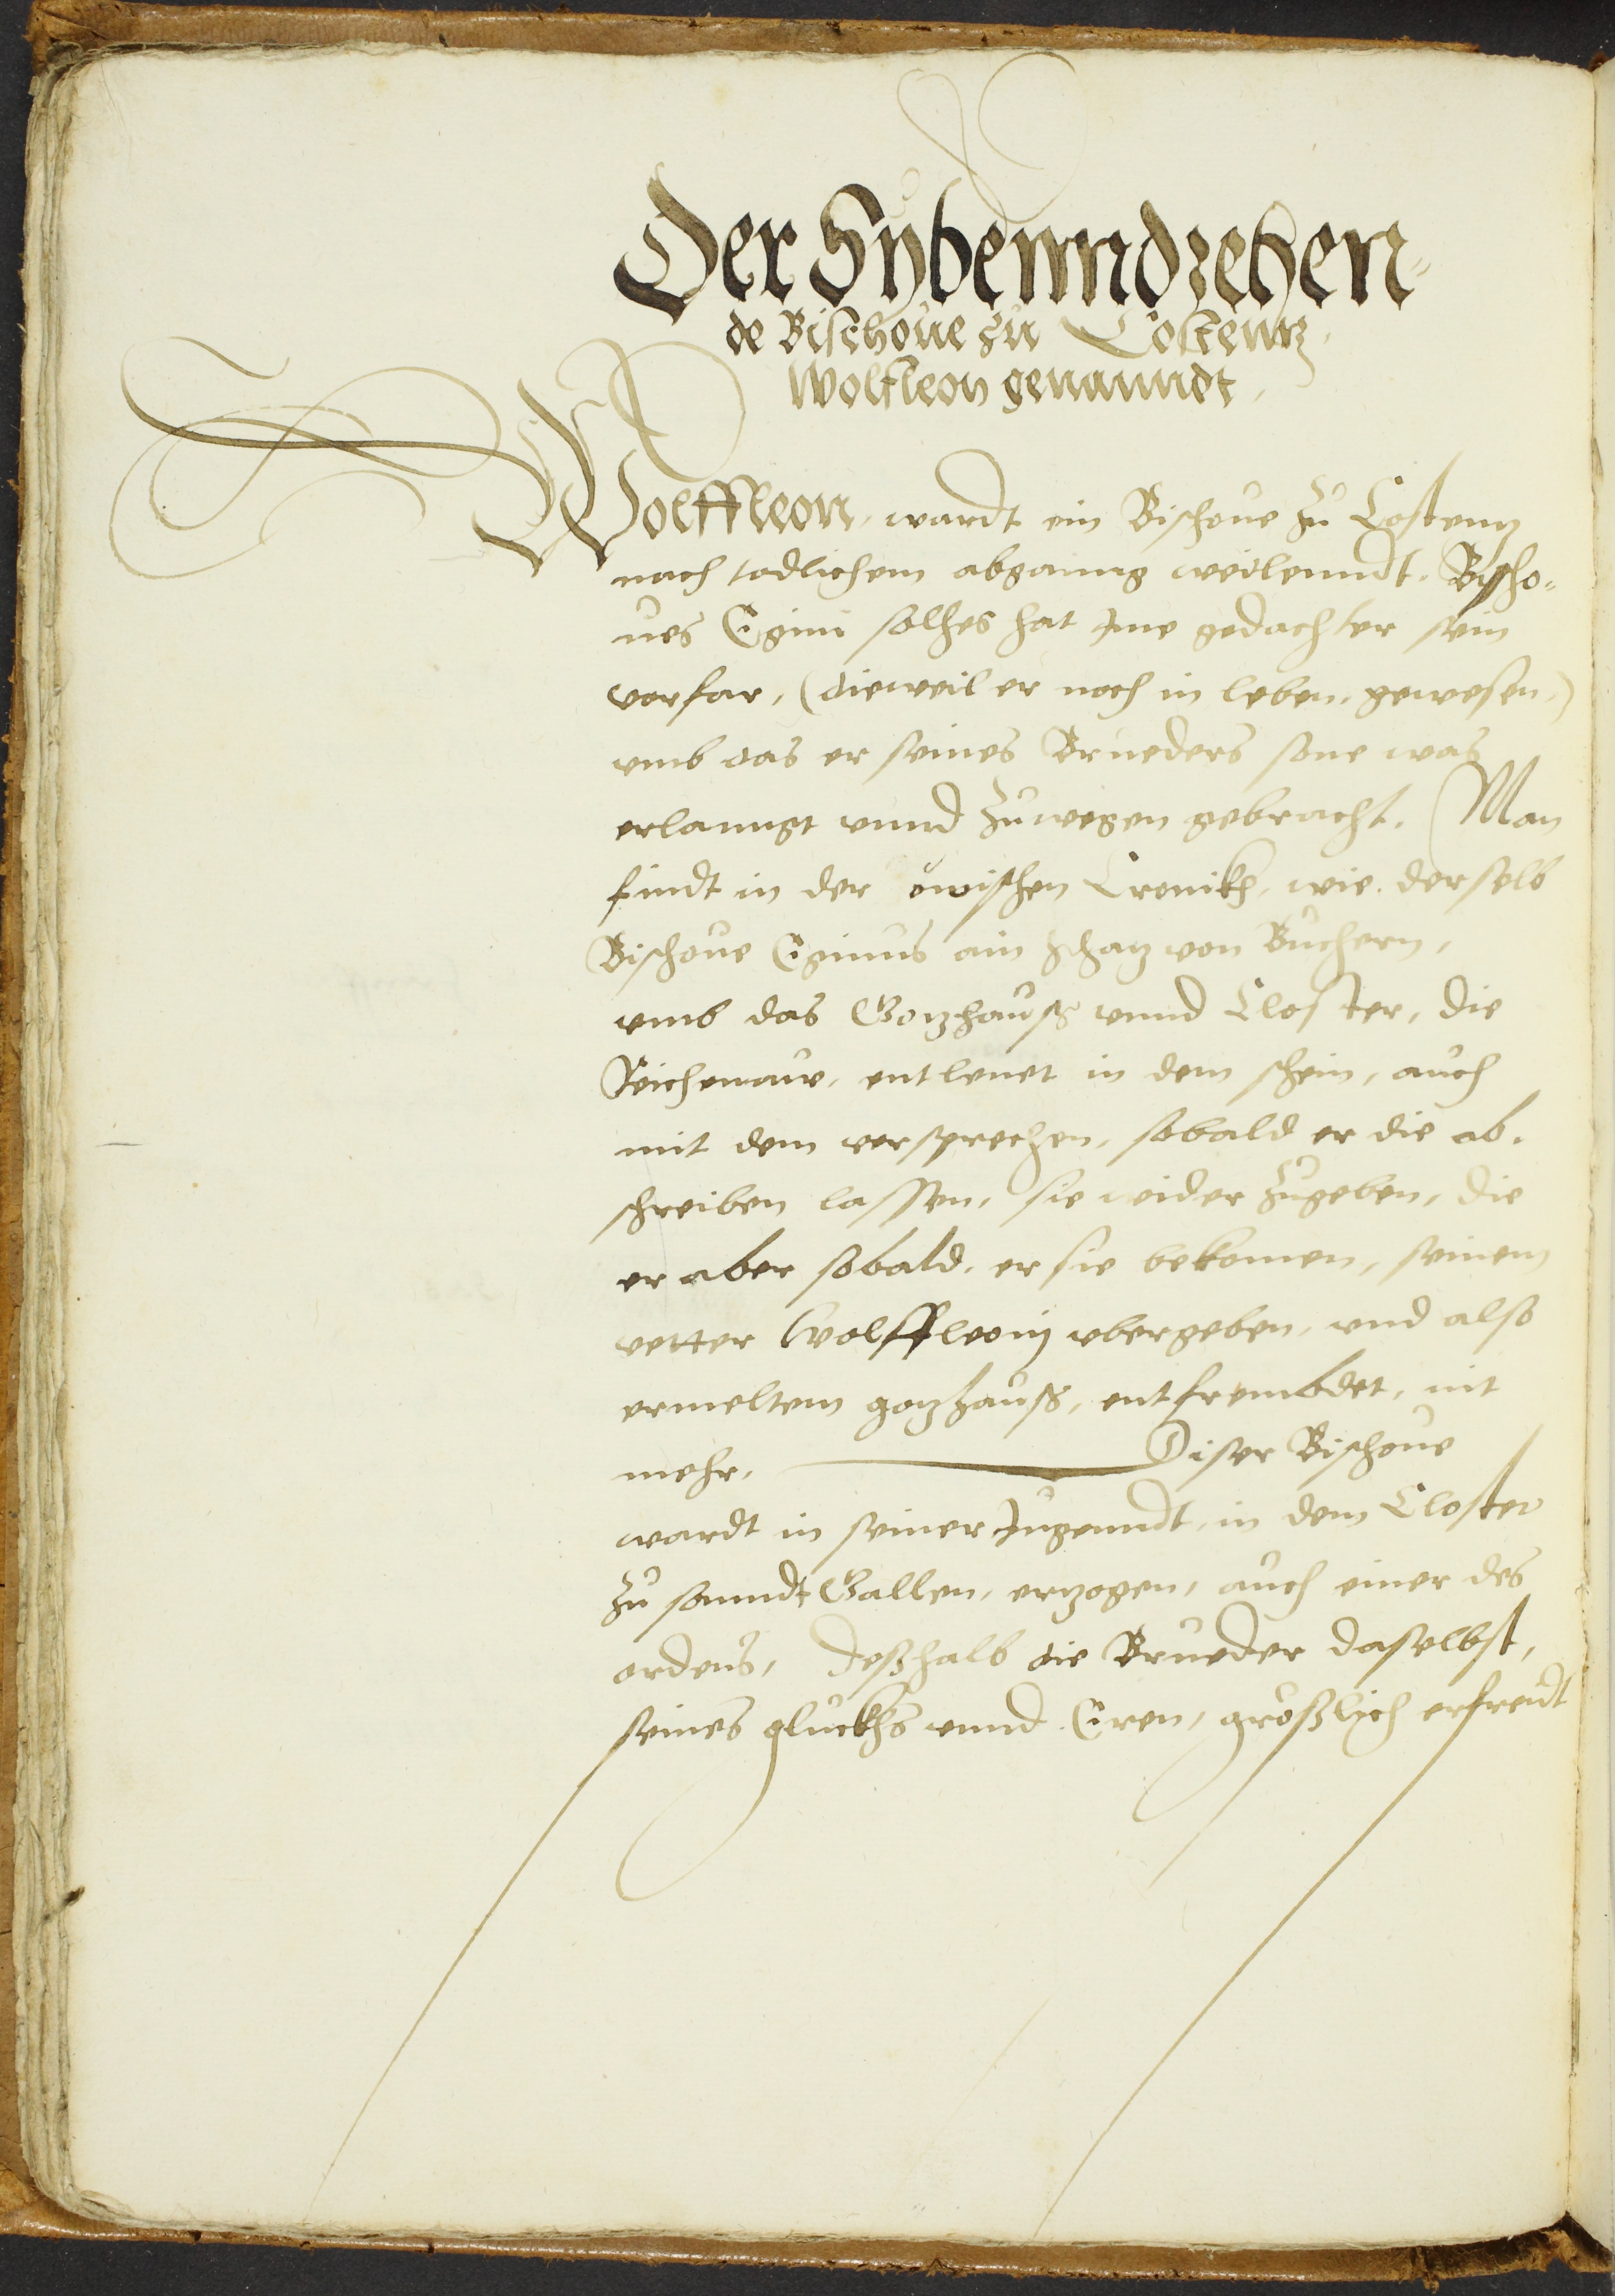 Der Sybenndzehen¬
de Bischoue zu Costentz,
Wolfleon genanndt,
Wolffleon, wardt ein Bischoue zu Costentz
nach todlichem abganng weilenndt. Bischo¬
ues Egini solhes hat Ime gedachter sein
vorfar, (dieweil er noch in leben, gewesen,)
vmb das er seines Brueders sone was
erlanngt vnnd zuwegen gebracht. Man
findt in der owischen Cronikh, wie derselb
Bischoue Eginus ain schatz von Buchern,
vmb das Gotzhauß vnnd Closter, die
Reichenaw, entlenet in dem schein, auch
mit dem versprechen, sobald er die ab¬
schreiben lassen, sie wider zugeben, die
er aber sobald, er sie bekomen, seinem
vetter Wolffleoin vbergeben, vnd also
ermeltem gotzhauß, entfrembdet, nit
mehr. Diser Bischoue
wardt in seiner Jugenndt, in dem Closter
zu sanndt Gallen, erzogen, auch einer des
ordens, deßhalb die Brueder daselbst,
seines gluckhs vnnd Eren, großlich erfreudt